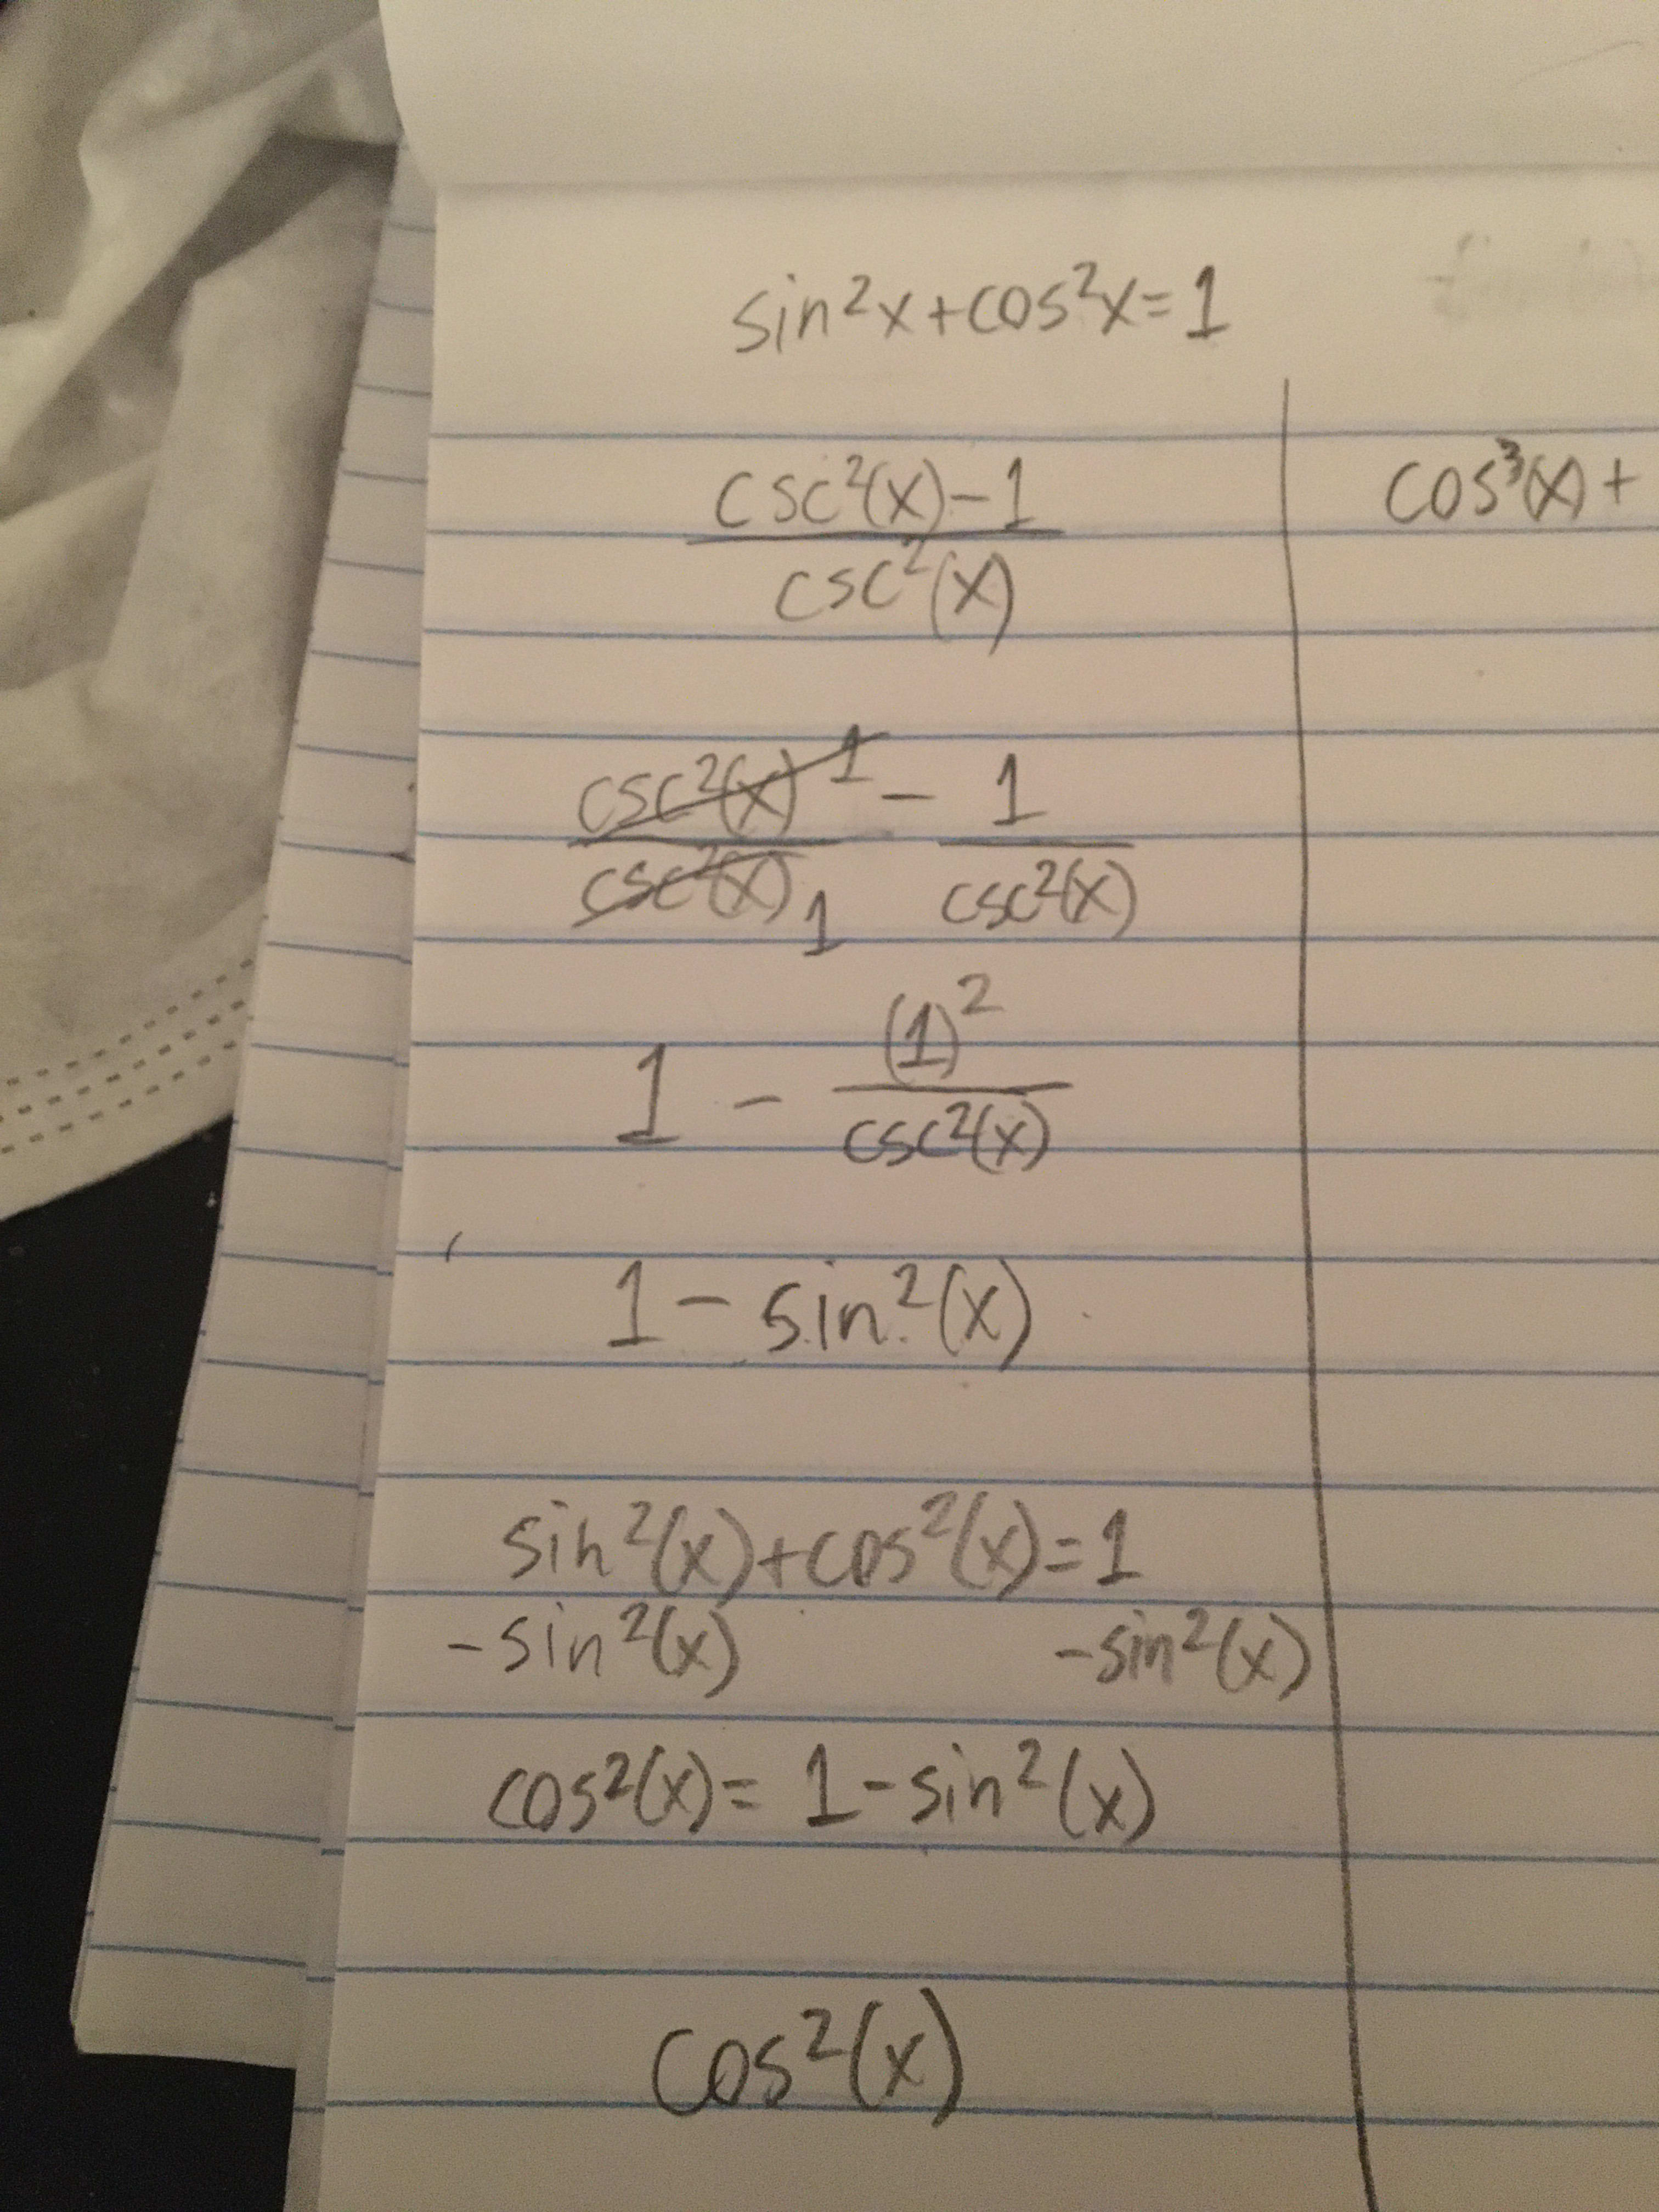 sin²x+cos²x=1
csc²(x)-1
csc²(x)
cos³(x)+
csc²(x) 1 - 1
csc²(x) 1 csc²(x)
1 - (1)²
csc²(x)
1-sin²(x)
sin²(x)+cos²(x)=1
-sin²(x) -sin²(x)
cos²(x)= 1-sin²(x)
cos²(x)